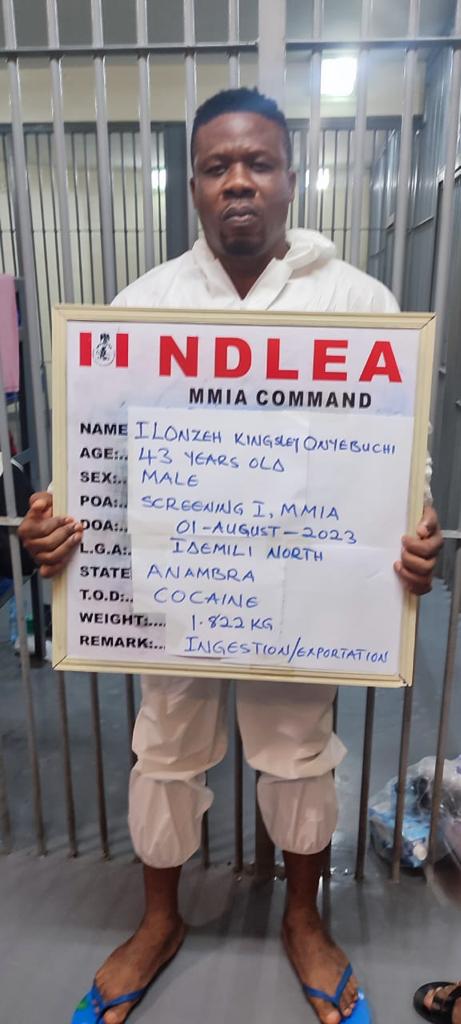 NDLEA
MMIA COMMAND
NAME ILONZEH KINGSLEY ONYEBUCHI
AGE:.. 43 YEARS OLD
SEX:.. MALE
POA:.. SCREENING I, MMIA
DOA:.. 01-AUGUST-2023
L.G.A:. IDEMILI NORTH
STATE ANAMBRA
T.O.D:.. COCAINE
WEIGHT:.... 1.822 KG
REMARK:... INGESTION/EXPORTATION